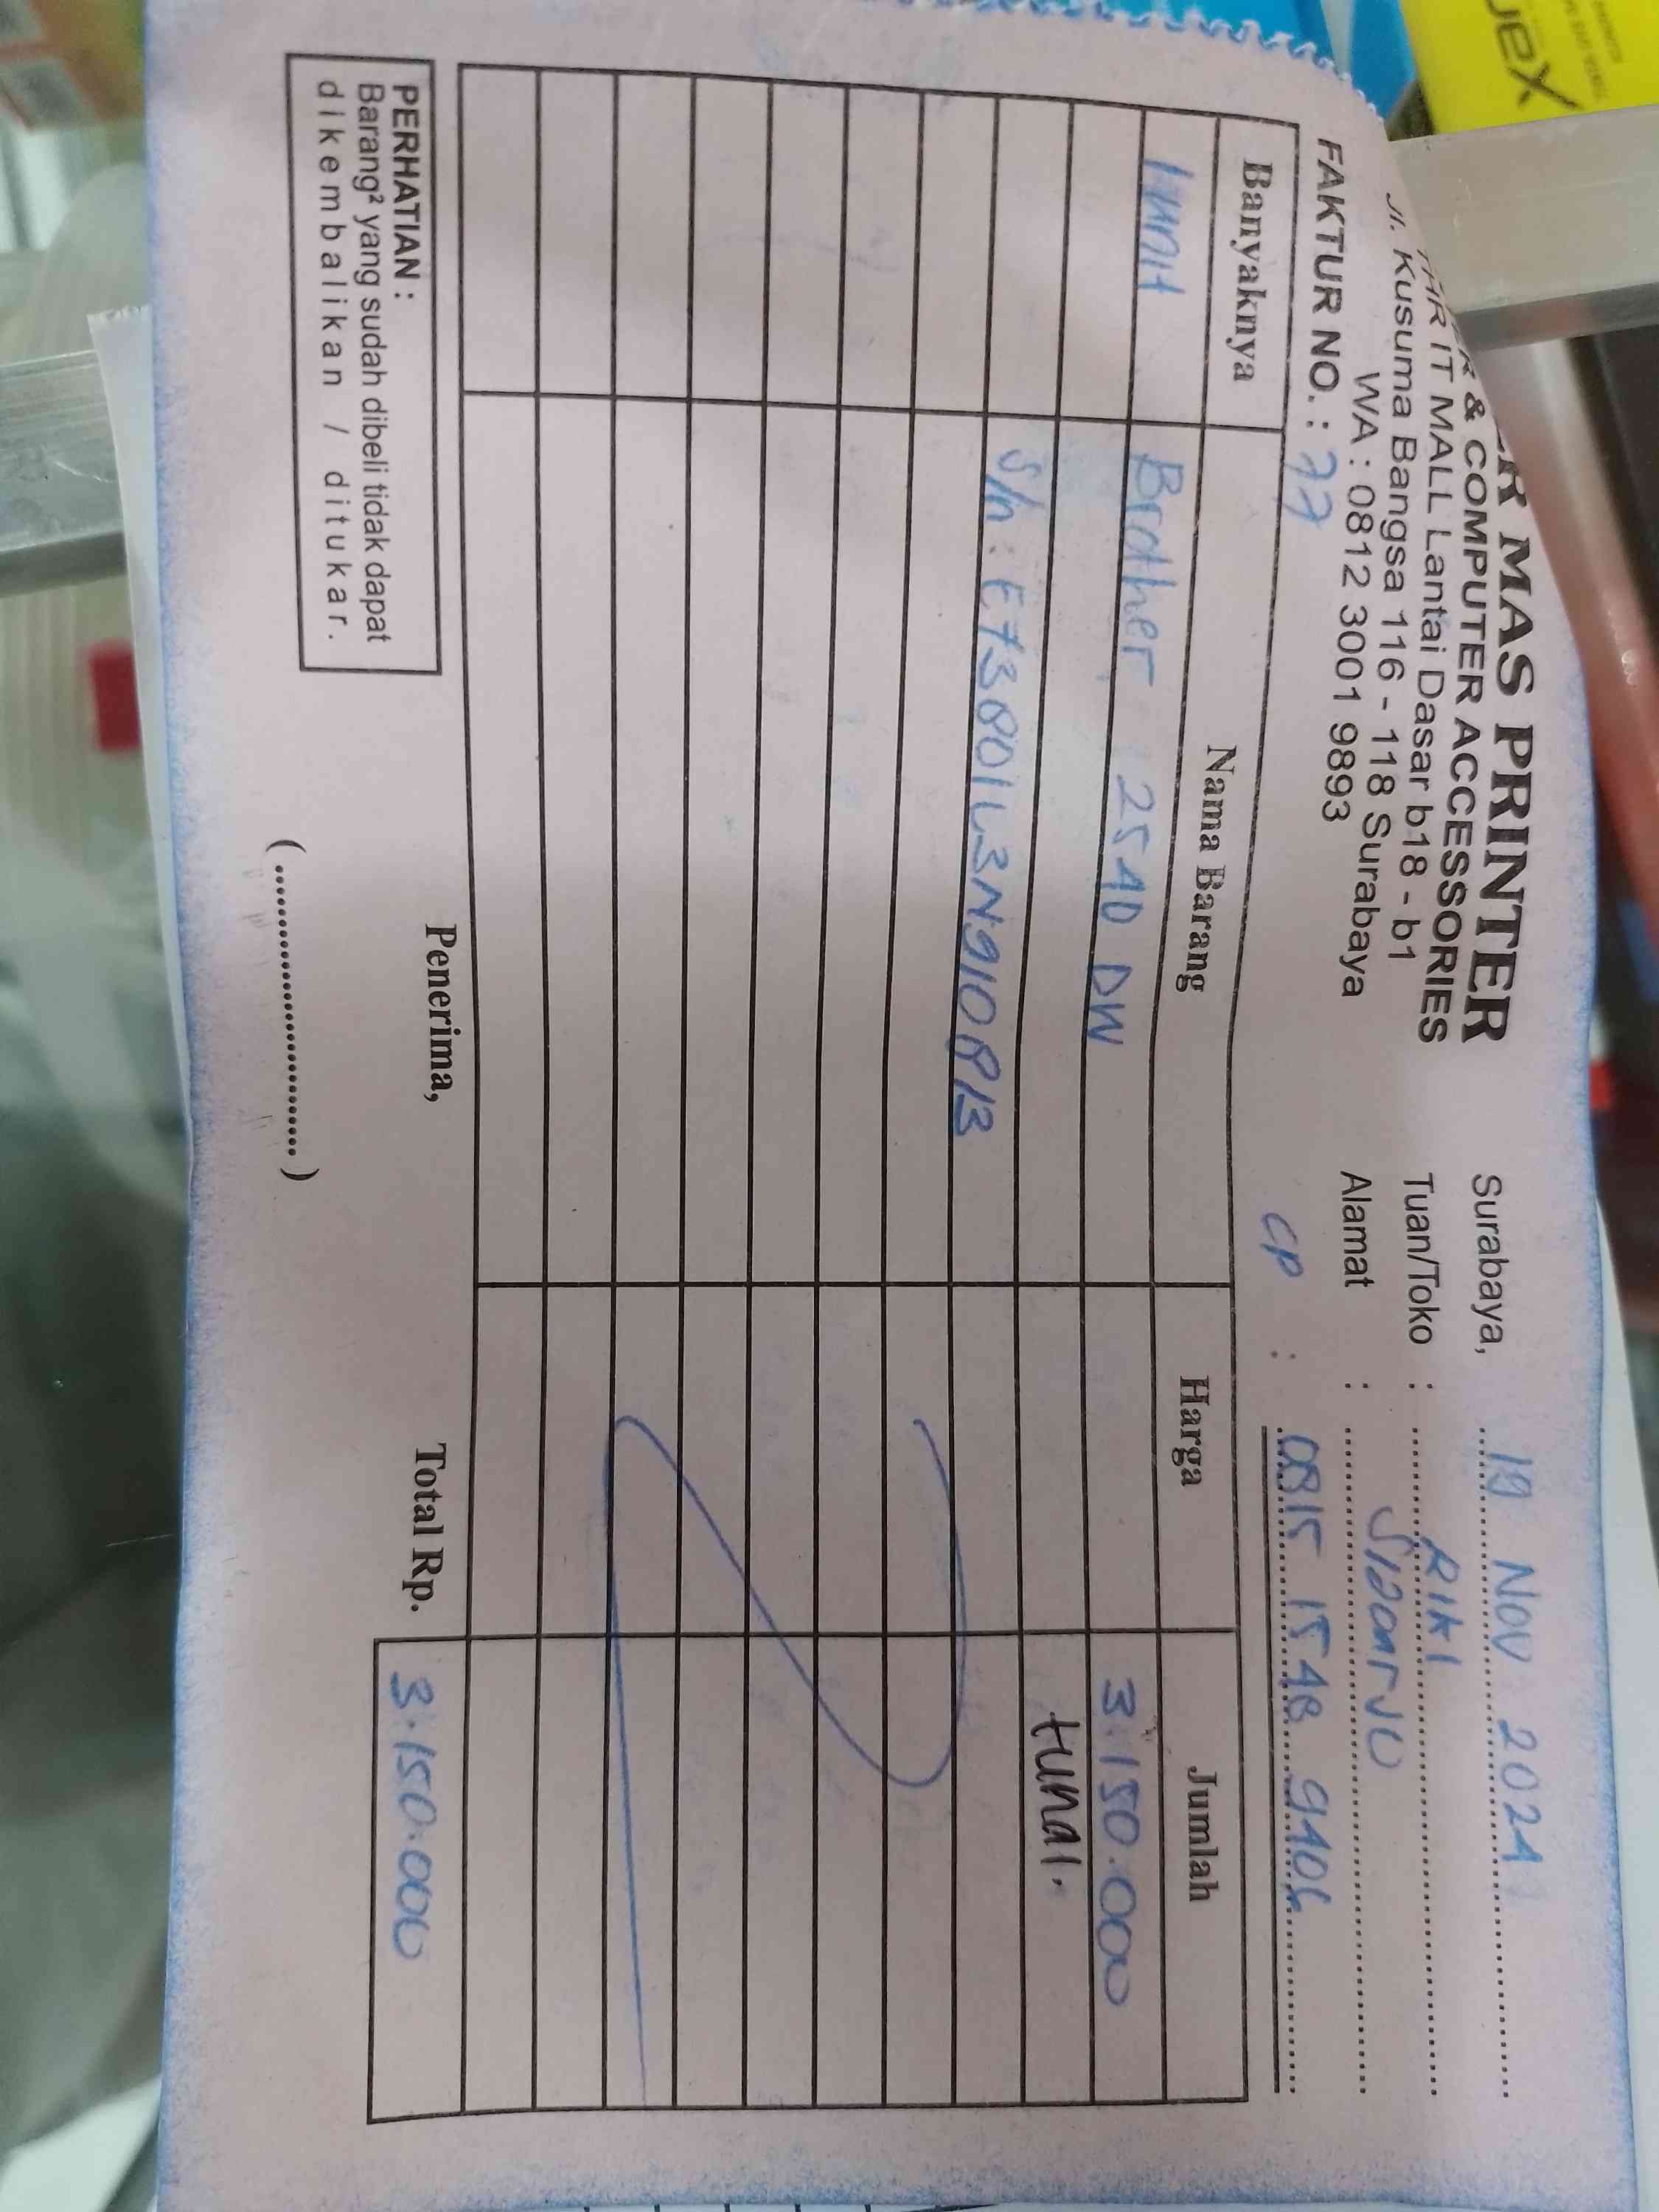 MAS PRINTER
& COMPUTER ACCESSORIES
IT MALL Lantai Dasar b18 - b1
Jl. Kusuma Bangsa 116 - 118 Surabaya
WA : 0812 3001 9893
FAKTUR NO. : 77
Surabaya, 19 Nov 2024
Tuan/Toko : RIKI
Alamat : SIDOARJO
CP : 0815 1548 9406
Banyaknya Nama Barang Harga Jumlah
1 unit Brother 2540 DW 3.150.000
tunai.
S/n : E73800L3N910813
PERHATIAN :
Barang² yang sudah dibeli tidak dapat
dikembalikan / ditukar.
Penerima,
(..............................)
Total Rp. 3.150.000
ueX